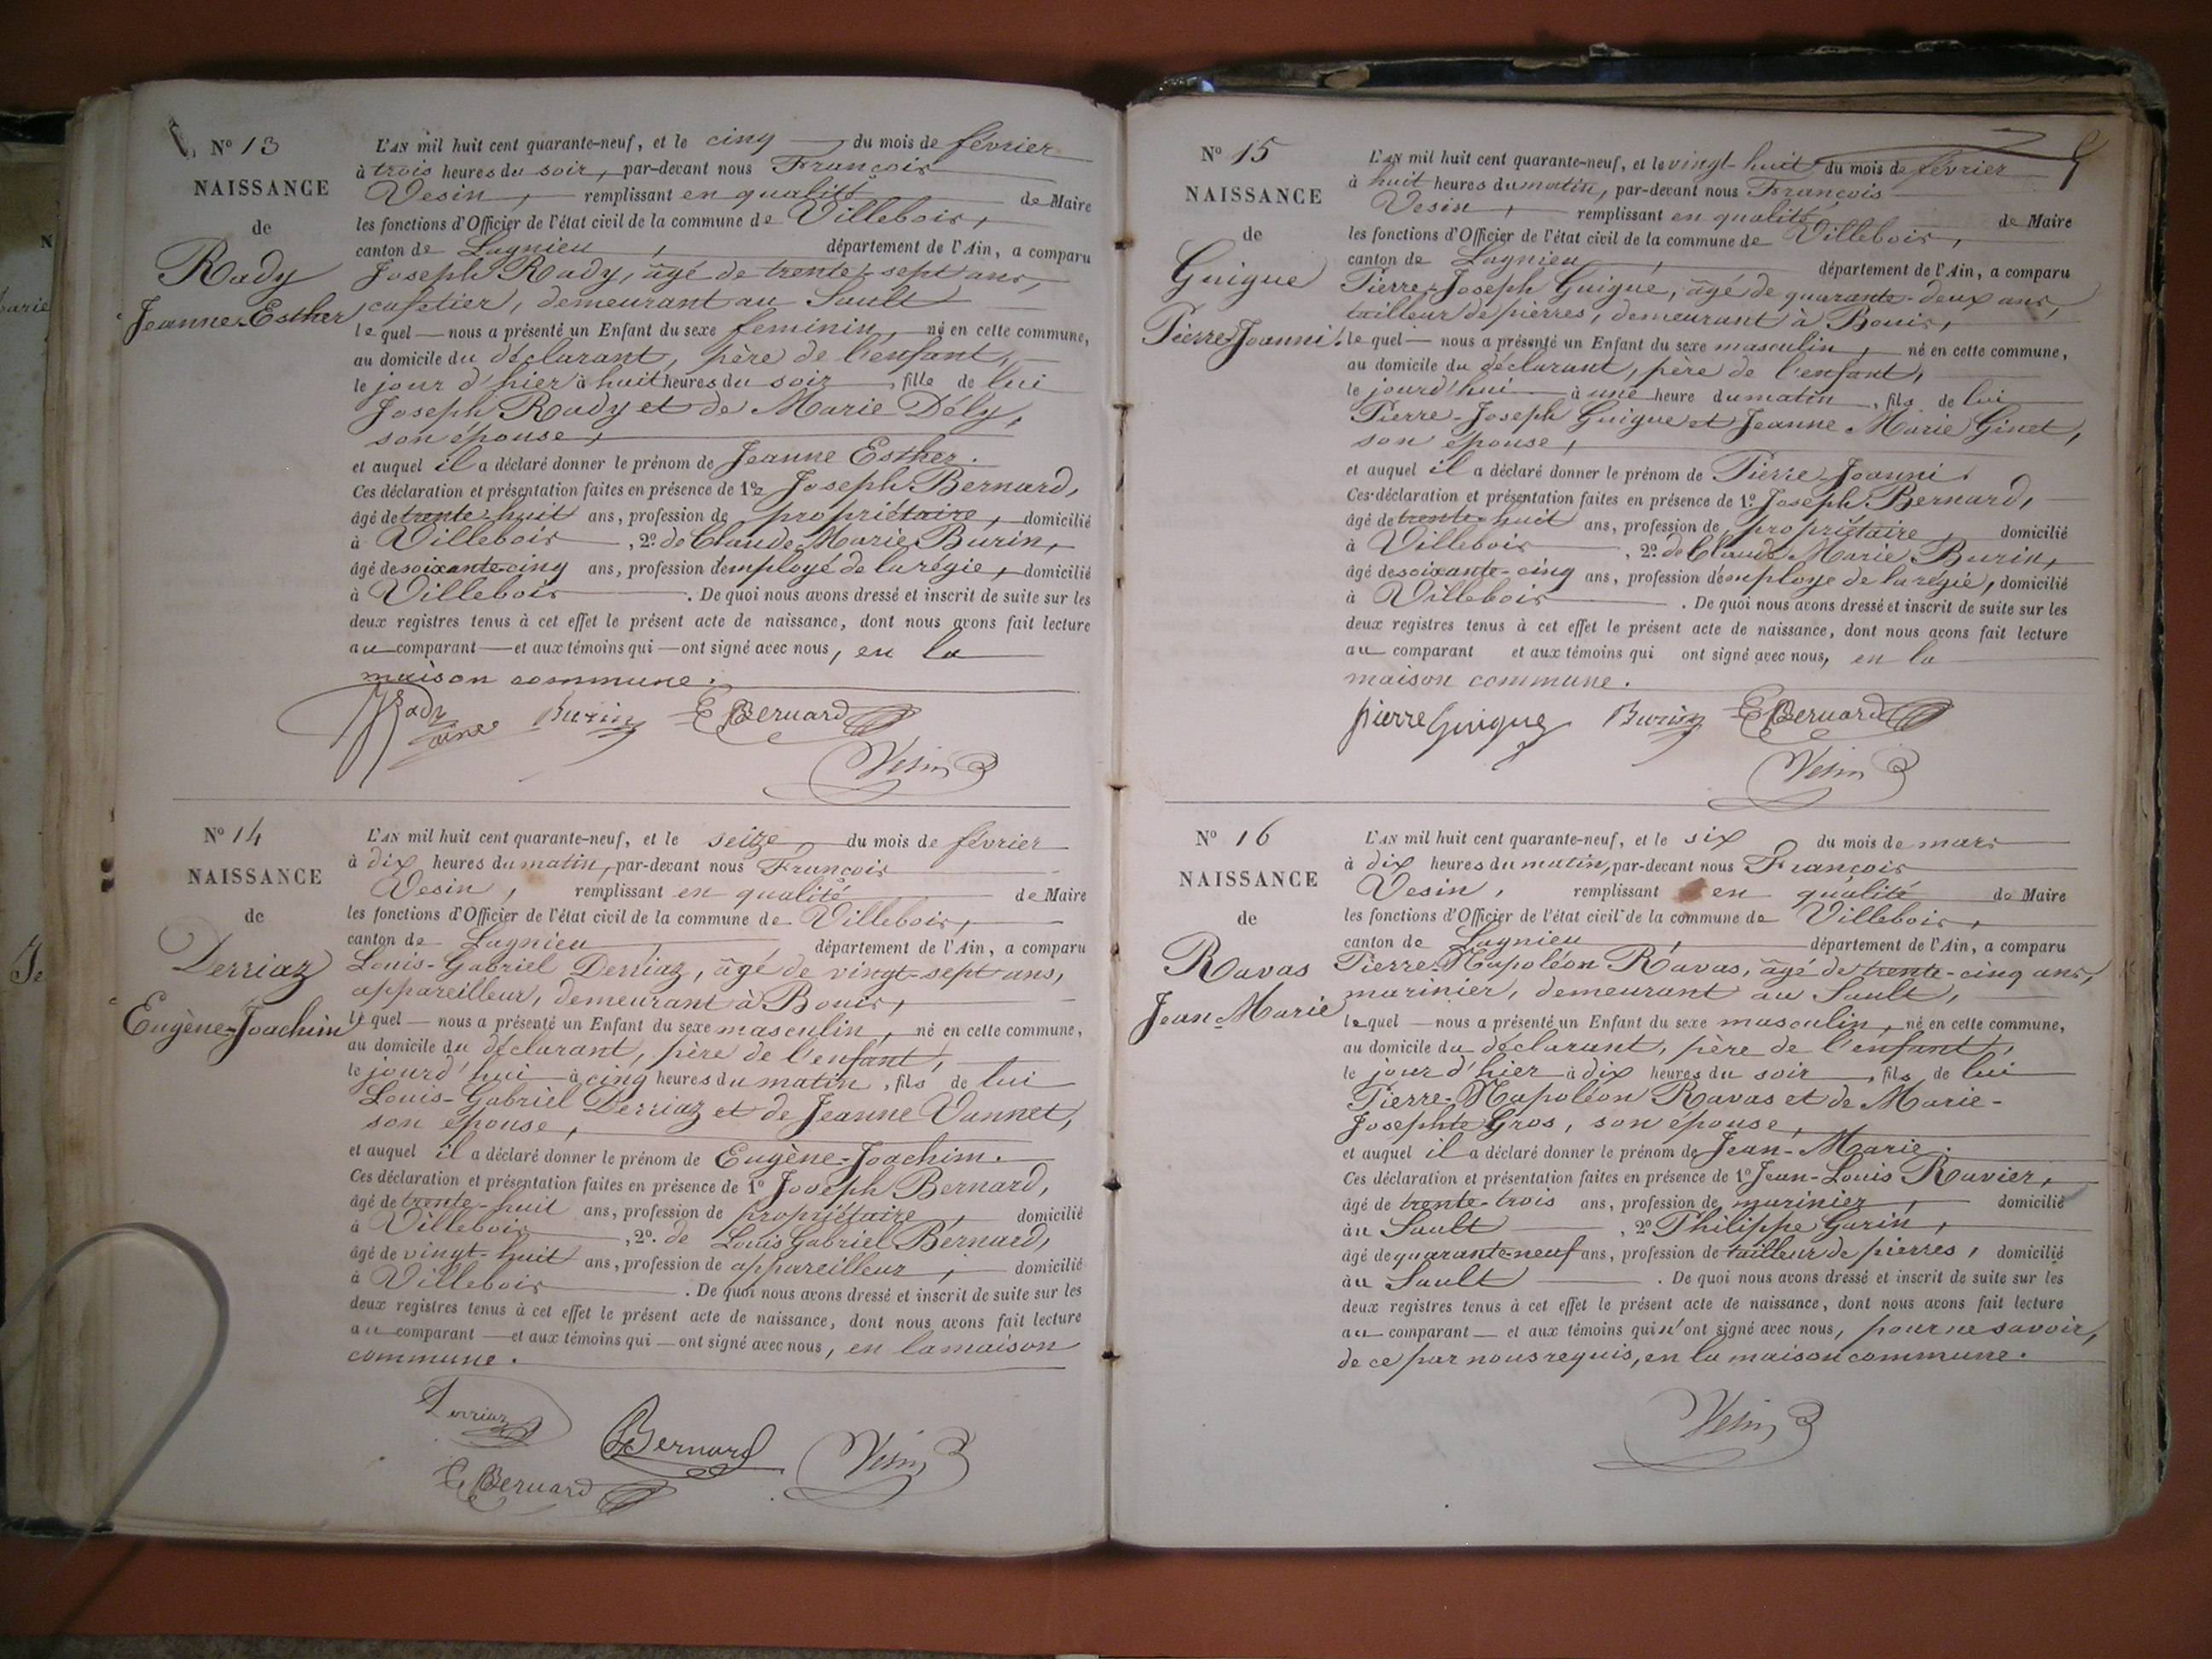 N° 13
NAISSANCE
de
Rady
Jeanne-Esther
L'AN mil huit cent quarante-neuf, et le cinq du mois de février
à trois heures du soir, par-devant nous François
Vesin, remplissant en qualité de Maire
les fonctions d'Officier de l'état civil de la commune de Villebois,
canton de Lagnieu, département de l'Ain, a comparu
Joseph Rady, âgé de trente-sept ans,
cafetier, demeurant au Sault
lequel nous a présenté un Enfant du sexe feminin, né en cette commune,
au domicile du déclarant, père de l'enfant,
le jour d'hier à huit heures du soir, fille de lui
Joseph Rady et de Marie Dély,
son épouse,
et auquel il a déclaré donner le prénom de Jeanne Esther.
Ces déclaration et présentation faites en présence de 1° Joseph Bernard,
âgé de trente-huit ans, profession de propriétaire, domicilié
à Villebois, 2° de Claude Marie Burin,
âgé de soixante-cinq ans, profession d'employé de la régie, domicilié
à Villebois. De quoi nous avons dressé et inscrit de suite sur les
deux registres tenus à cet effet le présent acte de naissance, dont nous avons fait lecture
au comparant et aux témoins qui ont signé avec nous, en la
maison commune.
Rady
ainé Burin E Bernard
Vesin
N° 14
NAISSANCE
de
Derriaz
Eugène-Joachim
L'AN mil huit cent quarante-neuf, et le seize, du mois de février
à dix heures du matin, par-devant nous François
Vesin, remplissant en qualité de Maire
les fonctions d'Officier de l'état civil de la commune de Villebois,
canton de Lagnieu, département de l'Ain, a comparu
Louis-Gabriel Derriaz, âgé de vingt-sept ans,
appareilleur, demeurant à Bouis,
lequel nous a présenté un Enfant du sexe masculin, né en cette commune,
au domicile du déclarant, père de l'enfant,
le jourd'hui à cinq heures du matin, fils de lui
Louis-Gabriel Derriaz et de Jeanne Vannet,
son épouse,
et auquel il a déclaré donner le prénom de Eugène-Joachim.
Ces déclaration et présentation faites en présence de 1° Joseph Bernard,
âgé de trente-huit ans, profession de propriétaire, domicilié
à Villebois, 2° de Louis Gabriel Bernard,
âgé de vingt-huit ans, profession de appareilleur, domicilié
à Villebois. De quoi nous avons dressé et inscrit de suite sur les
deux registres tenus à cet effet le présent acte de naissance, dont nous avons fait lecture
au comparant et aux témoins qui ont signé avec nous, en la maison
commune.
Derriaz Bernard Vesin
E Bernard
N° 15
NAISSANCE
de
Guigue
Pierre Joanni
L'AN mil huit cent quarante-neuf, et le vingt-huit du mois de février
à huit heures du matin, par-devant nous François
Vesin, remplissant en qualité de Maire
les fonctions d'Officier de l'état civil de la commune de Villebois,
canton de Lagnieu, département de l'Ain, a comparu
Pierre-Joseph Guigue, âgé de quarante-deux ans,
tailleur de pierres, demeurant à Bouis,
lequel nous a présenté un Enfant du sexe masculin, né en cette commune,
au domicile du déclarant, père de l'enfant,
le jourd'hui à une heure du matin, fils de lui
Pierre-Joseph Guigue et Jeanne Marie Ginet,
son épouse,
et auquel il a déclaré donner le prénom de Pierre-Joanni.
Ces déclaration et présentation faites en présence de 1° Joseph Bernard,
âgé de trente-huit ans, profession de propriétaire, domicilié
à Villebois, 2° de Claude Marie Burin,
âgé de soixante-cinq ans, profession d'employe de la régie, domicilié
à Villebois. De quoi nous avons dressé et inscrit de suite sur les
deux registres tenus à cet effet le présent acte de naissance, dont nous avons fait lecture
au comparant et aux témoins qui ont signé avec nous, en la
maison commune.
pierre guigue Burin E Bernard
Vesin
N° 16
NAISSANCE
de
Ravas
Jean-Marie
L'AN mil huit cent quarante-neuf, et le six du mois de mars
à dix heures du matin, par-devant nous François
Vesin, remplissant en qualité de Maire
les fonctions d'Officier de l'état civil de la commune de Villebois,
canton de Lagnieu, département de l'Ain, a comparu
Pierre-Napoléon Ravas, âgé de trente-cinq ans,
marinier, demeurant au Sault,
lequel nous a présenté un Enfant du sexe masculin, né en cette commune,
au domicile du déclarant, père de l'enfant,
le jour d'hier à dix heures du soir, fils de lui
Pierre-Napoléon Ravas et de Marie-
Josephte Gros, son épouse,
et auquel il a déclaré donner le prénom de Jean-Marie.
Ces déclaration et présentation faites en présence de 1° Jean-Louis Ravier,
âgé de trente-trois ans, profession de marinier, domicilié
au Sault, 2° Philippe Garin,
âgé de quarante-neuf ans, profession de tailleur de pierres, domicilié
au Sault. De quoi nous avons dressé et inscrit de suite sur les
deux registres tenus à cet effet le présent acte de naissance, dont nous avons fait lecture
au comparant et aux témoins qui n'ont signé avec nous, pour ne savoir,
de ce par nous requis, en la maison commune.
Vesin